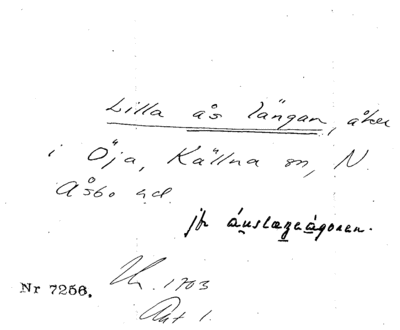 Lilla ås längan, åker
i Öja, Källna sn, N.
Åsbo hd.
jfr
Nr 7256.
1703
Akt 1.